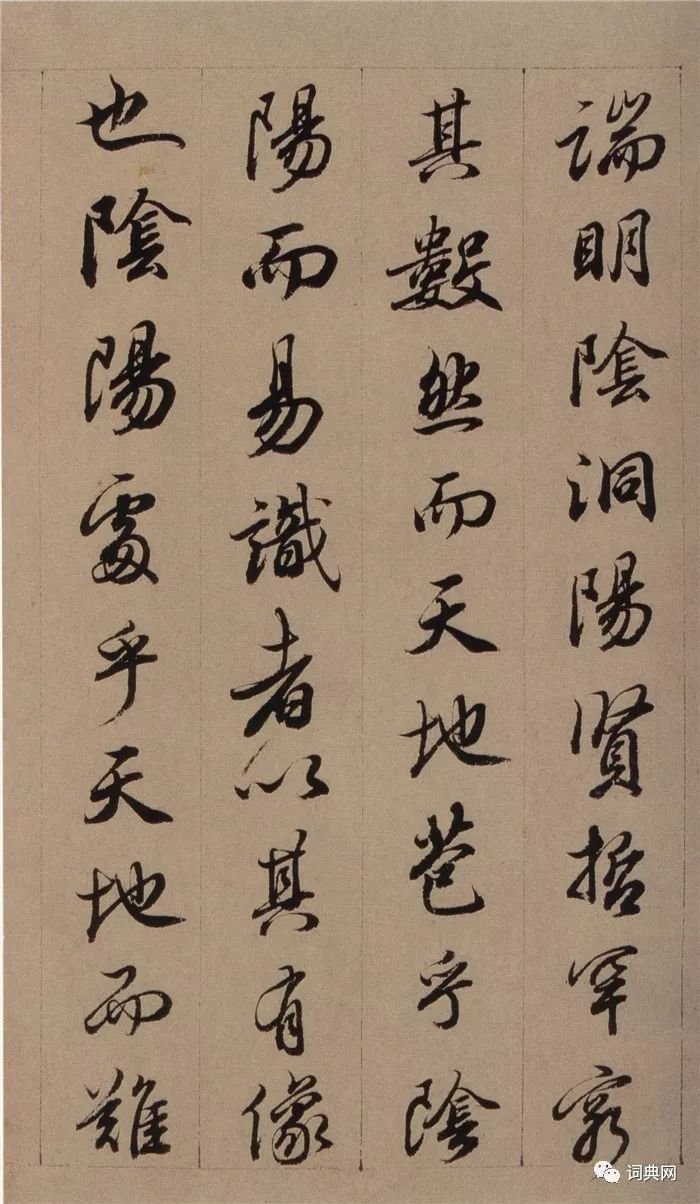 端明陰洞陽賢哲罕窮
其數然而天地苞乎陰
陽而易識者以其有像
也陰陽處乎天地而難
词典网